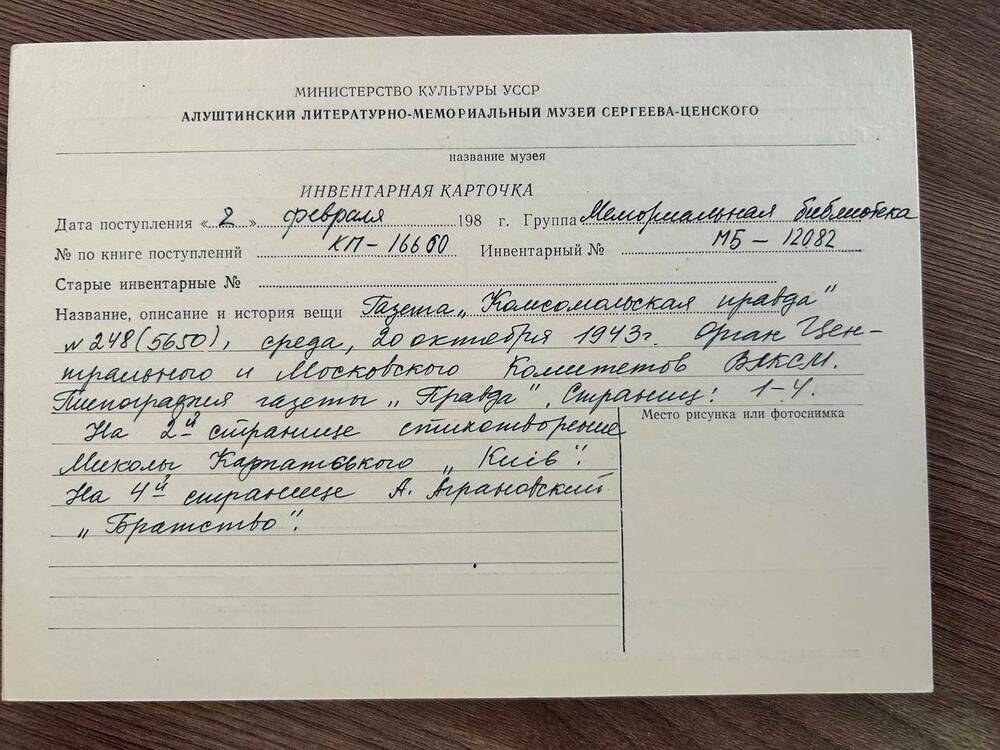 МИНИСТЕРСТВО КУЛЬТУРЫ УССР
АЛУШТИНСКИЙ ЛИТЕРАТУРНО-МЕМОРИАЛЬНЫЙ МУЗЕЙ СЕРГЕЕВА-ЦЕНСКОГО
название музея
ИНВЕНТАРНАЯ КАРТОЧКА
Дата поступления «2» февраля 198 г. Группа Мемориальная библиотека
№ по книге поступлений КП-16660 Инвентарный № МБ-12082
Старые инвентарные №
Название, описание и история вещи Газета „Комсомольская правда"
№ 248 (5650), среда, 20 октября 1943г. Орган Цен-
трального и Московского Комитетов ВЛКСМ.
Типография газеты „Правда". Страниц: 1-4.
Место рисунка или фотоснимка
На 2й странице стихотворение
Миколы Карпатського „Київ".
На 4й странице А. Аграновский
„Братство".